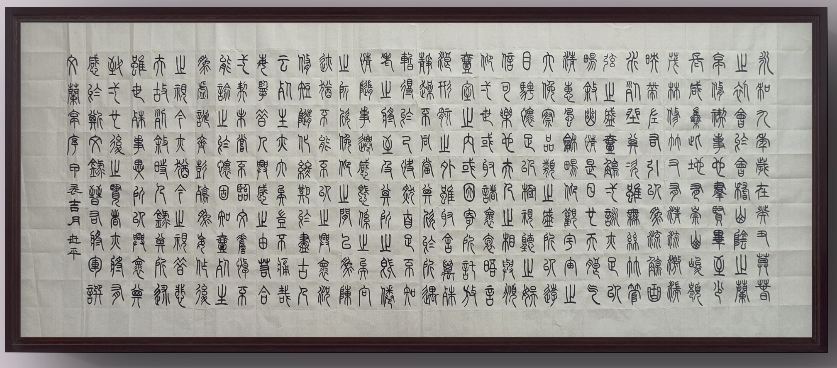 永和九年歲在癸丑暮春
之初會於會稽山陰之蘭
亭脩禊事也羣賢畢至少
長咸集此地有崇山峻領
茂林脩竹又有清流激湍
映帶左右引以為流觴曲
水列坐其次雖無絲竹管
弦之盛一觴一詠亦足以
暢敘幽情是日也天朗氣
清惠風和暢仰觀宇宙之
大俯察品類之盛所以遊
目騁懷足以極視聽之娛
信可樂也夫人之相與俯
仰一世或取諸懷抱悟言
一室之內或因寄所託放
浪形骸之外雖取舍萬殊
靜躁不同當其欣於所遇
暫得於己快然自足不知
老之將至及其所之既倦
情隨事遷感慨係之矣向
之所欣俛仰之間以為陳
迹猶不能不以之興懷況
脩短隨化終期於盡古人
云死生亦大矣豈不痛哉
每攬昔人興感之由若合
一契未嘗不臨文嗟悼不
能喻之於懷固知一死生
為虛誕齊彭殤為妄作後
之視今亦猶今之視昔悲
夫故列敘時人錄其所述
雖世殊事異所以興懷其
致一也後之覽者亦將有
感於斯文錄晉右將軍譔
文蘭亭序甲辰吉月